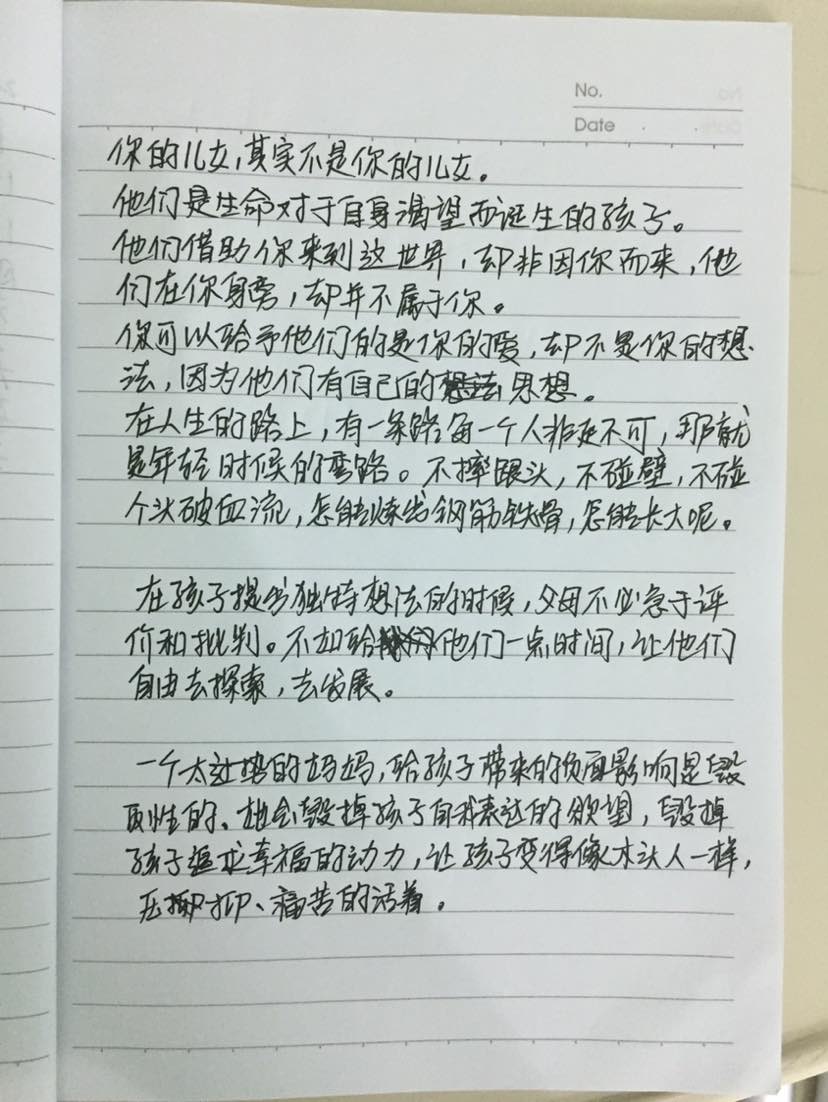 No.
Date
你的儿女,其实不是你的儿女。
他们是生命对于自身渴望而诞生的孩子。
他们借助你来到这世界,却非因你而来,他
们在你身旁,却并不属于你。
你可以给予他们的是你的爱,却不是你的想
法,因为他们有自己的思想。
在人生的路上,有一条路每一个人非走不可,那就
是年轻时候的弯路。不摔跟头,不碰壁,不碰
个头破血流,怎能炼出钢筋铁骨,怎能长大呢。
在孩子提出独特想法的时候,父母不必急于评
价和批判。不如给他们一点时间,让他们
自由去探索,去发展。
一个太过强势的妈妈,给孩子带来的负面影响是毁
灭性的、她会毁掉孩子自我表达的欲望,毁掉
孩子追求幸福的动力,让孩子变得像木头人一样,
压抑、痛苦的活着。